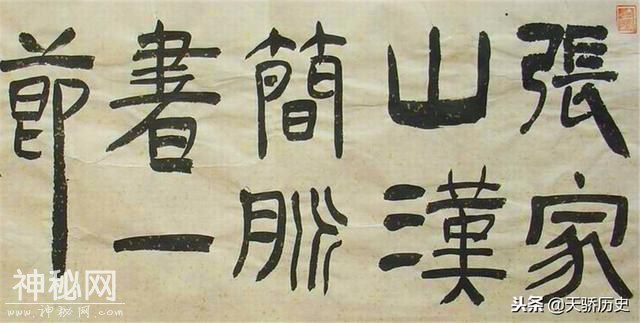 張家
山漢
簡脈
書一
節
神秘网
www.神秘网.com
头条@天骄历史